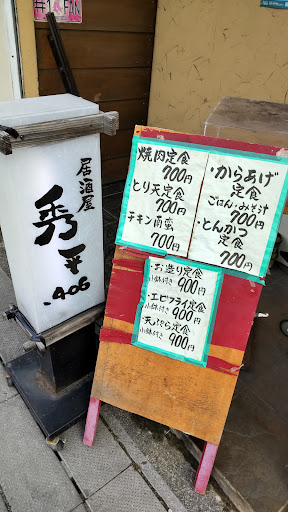 #1 FAN
居酒屋
秀平
.406
焼肉定食
700円
とり天定食
700円
チキン南蛮
700円
・からあげ
定食
ごはん・みそ汁
700円
・とんかつ
定食
700円
・お造り定食
小鉢付き 900円
・エビフライ定食
小鉢付き 900円
・天ぷら定食
小鉢付き 900円